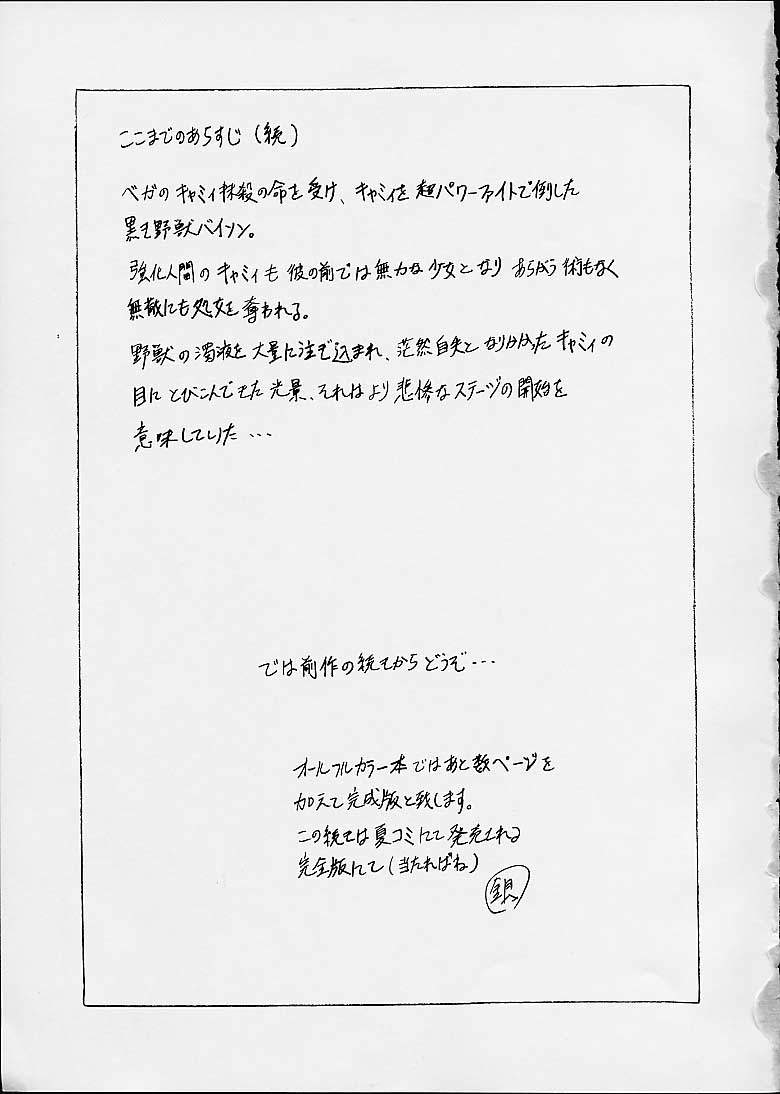 ここまでのあらすじ(続)
ベガのキャミィ抹殺の命を受け、キャミィを超パワーファイトで倒した
黒き野獣バイソン。
強化人間のキャミィも彼の前では無力な少女となりあらがう術もなく
無敵にも処女を奪われる。
野獣の濁液を大量に注ぎ込まれ、茫然自失となりかかったキャミィの
目にとびこんできた光景、それはより悲惨なステージの開始を
意味していた…
では前作の続きからどうぞ…
オールフルカラー本ではあと数ページを
加えて完成版と致します。
この続きは夏コミにて発売される
完全版にて(当たればね)
銀